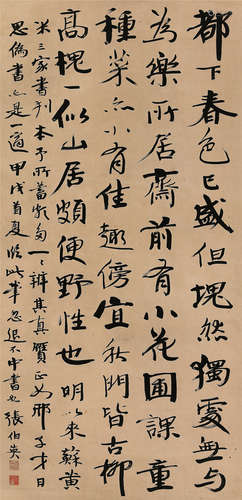 都下春色已盛但塊然獨處無與
為樂所居齋前有小花圃課童
種菜亦小有佳趣傍宜秋門皆古柳
高槐一似山居頗便野性也明以來蘇黃
米三家書刊本予所蓄一一辨其真贗正如邢子才日
思書亦是一適甲戌首夏臨此筆忽退不中書也張伯英